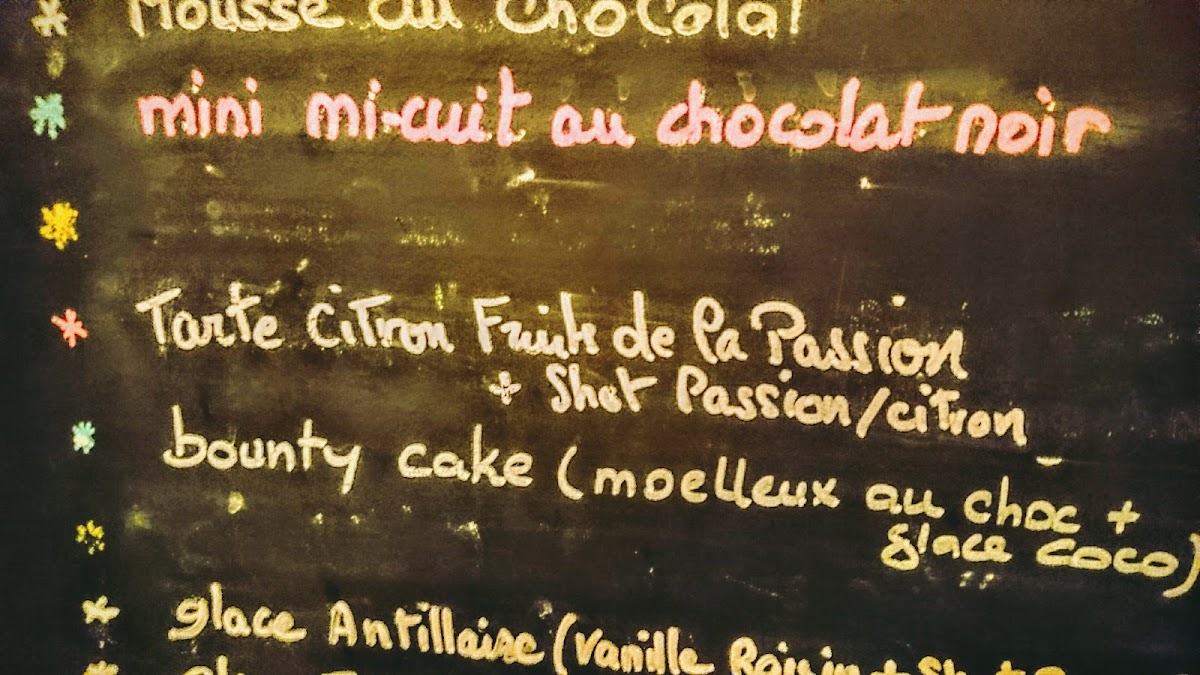 Mousse au Chocolat
mini mi-cuit au chocolat noir
Tarte Citron Fruits de la Passion
+ Shot Passion/citron
bounty cake (moelleux au choc +
glace coco)
glace Antillaise (Vanille Raisin + Shot